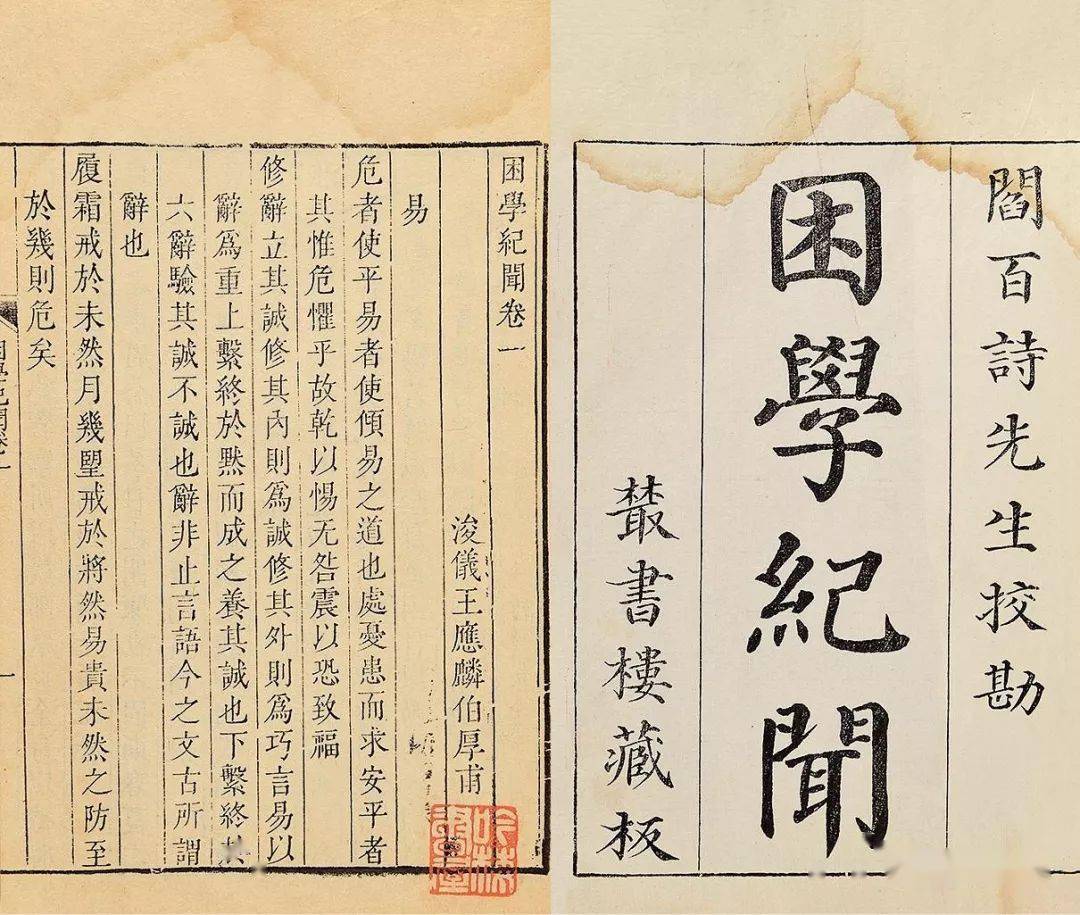 閻百詩先生挍勘
困學紀聞
叢書樓藏板
困學紀聞卷一
浚儀王應麟伯厚甫
易
危者使平易者使傾易之道也處憂患而求安平者
其惟危懼乎故乾以惕无咎震以恐致福
修辭立其誠修其內則為誠修其外則為巧言易以
辭為重上繫終於默而成之養其誠也下繫終於
六辭驗其誠不誠也辭非止言語今之文古所謂
辭也
履霜戒於未然月幾朢戒於將然易貴未然之防至
於幾則危矣
困學紀聞卷一
一